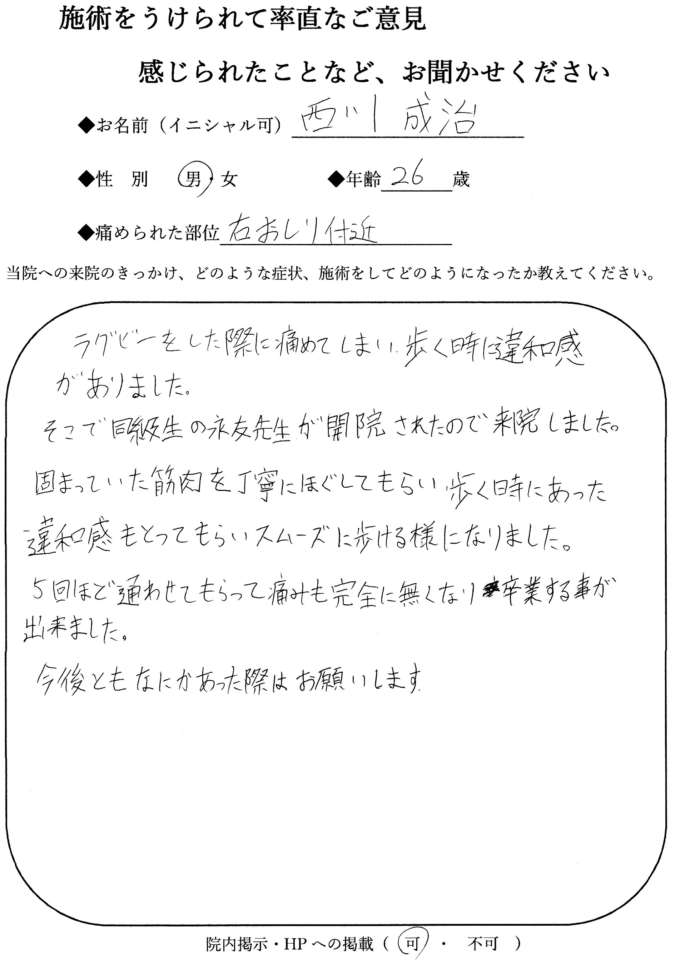 施術をうけられて率直なご意見
感じられたことなど、お聞かせください
◆お名前（イニシャル可） 西川 成治
◆性 別 男・女 ◆年齢 26 歳
◆痛められた部位 右おしり付近
当院への来院のきっかけ、どのような症状、施術をしてどのようになったか教えてください。
ラグビーをした際に痛めてしまい、歩く時に違和感
がありました。
そこで同級生の永友先生が開院されたので来院しました。
固まっていた筋肉を丁寧にほぐしてもらい 歩く時にあった
違和感もとってもらいスムーズに歩ける様になりました。
5回ほど通わせてもらって痛みも完全に無くなり 卒業する事が
出来ました。
今後ともなにかあった際はお願いします
院内掲示・HPへの掲載（ 可 ・ 不可 ）